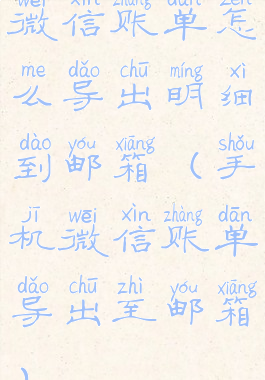 wēi xìn zhàng dān zěn
微信账单怎
me dǎo chū míng xì
么导出明细
dào yóu xiāng shǒu
到邮箱(手
jī wēi xìn zhàng dān
机微信账单
dǎo chū zhì yóu xiāng
导出至邮箱
)